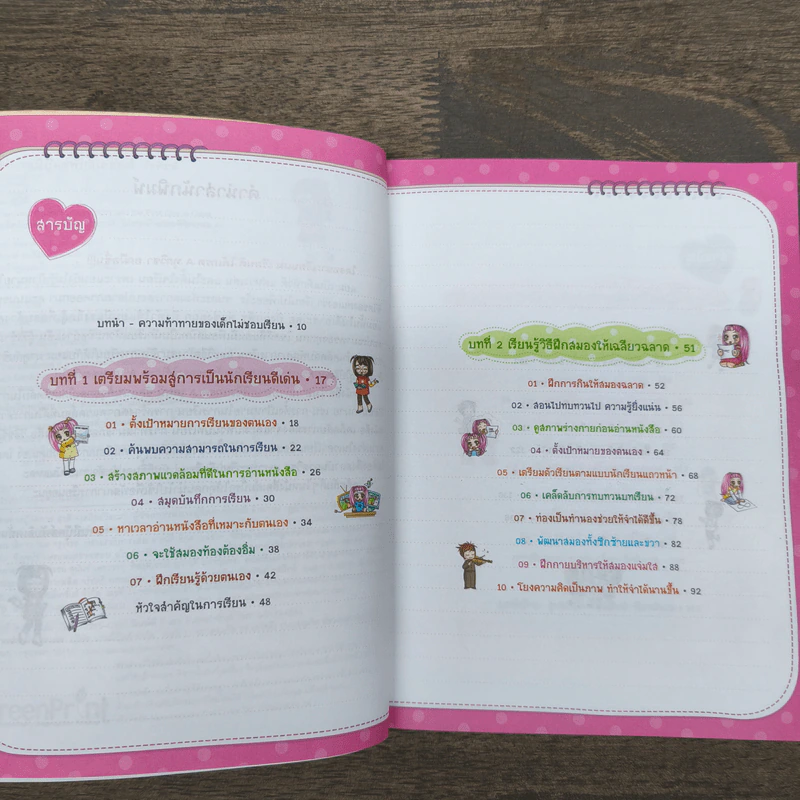 สารบัญ
บทนำ - ความท้าทายของเด็กไม่ชอบเรียน • 10
บทที่ 1 เตรียมพร้อมสู่การเป็นนักเรียนดีเด่น • 17
01 • ตั้งเป้าหมายการเรียนของตนเอง • 18
02 • ค้นพบความสามารถในการเรียน • 22
03 • สร้างสภาพแวดล้อมที่ดีในการอ่านหนังสือ • 26
04 • สมุดบันทึกการเรียน • 30
05 • หาเวลาอ่านหนังสือที่เหมาะกับตนเอง • 34
06 • จะใช้สมองท้องต้องอิ่ม • 38
07 • ฝึกเรียนรู้ด้วยตนเอง • 42
หัวใจสำคัญในการเรียน • 48
บทที่ 2 เรียนรู้วิธีฝึกสมองให้เฉลียวฉลาด • 51
01 • ฝึกการกินให้สมองฉลาด • 52
02 • สอนไปทบทวนไป ความรู้ยิ่งแน่น • 56
03 • ดูสภาพร่างกายก่อนอ่านหนังสือ • 60
04 • ตั้งเป้าหมายของตนเอง • 64
05 • เตรียมตัวเรียนตามแบบนักเรียนแถวหน้า • 68
06 • เคล็ดลับการทบทวนบทเรียน • 72
07 • ท่องเป็นทำนองช่วยให้จำได้ดีขึ้น • 78
08 • พัฒนาสมองทั้งซีกซ้ายและขวา • 82
09 • ฝึกกายบริหารให้สมองแจ่มใส • 88
10 • โยงความคิดเป็นภาพ ทำให้จำได้นานขึ้น • 92